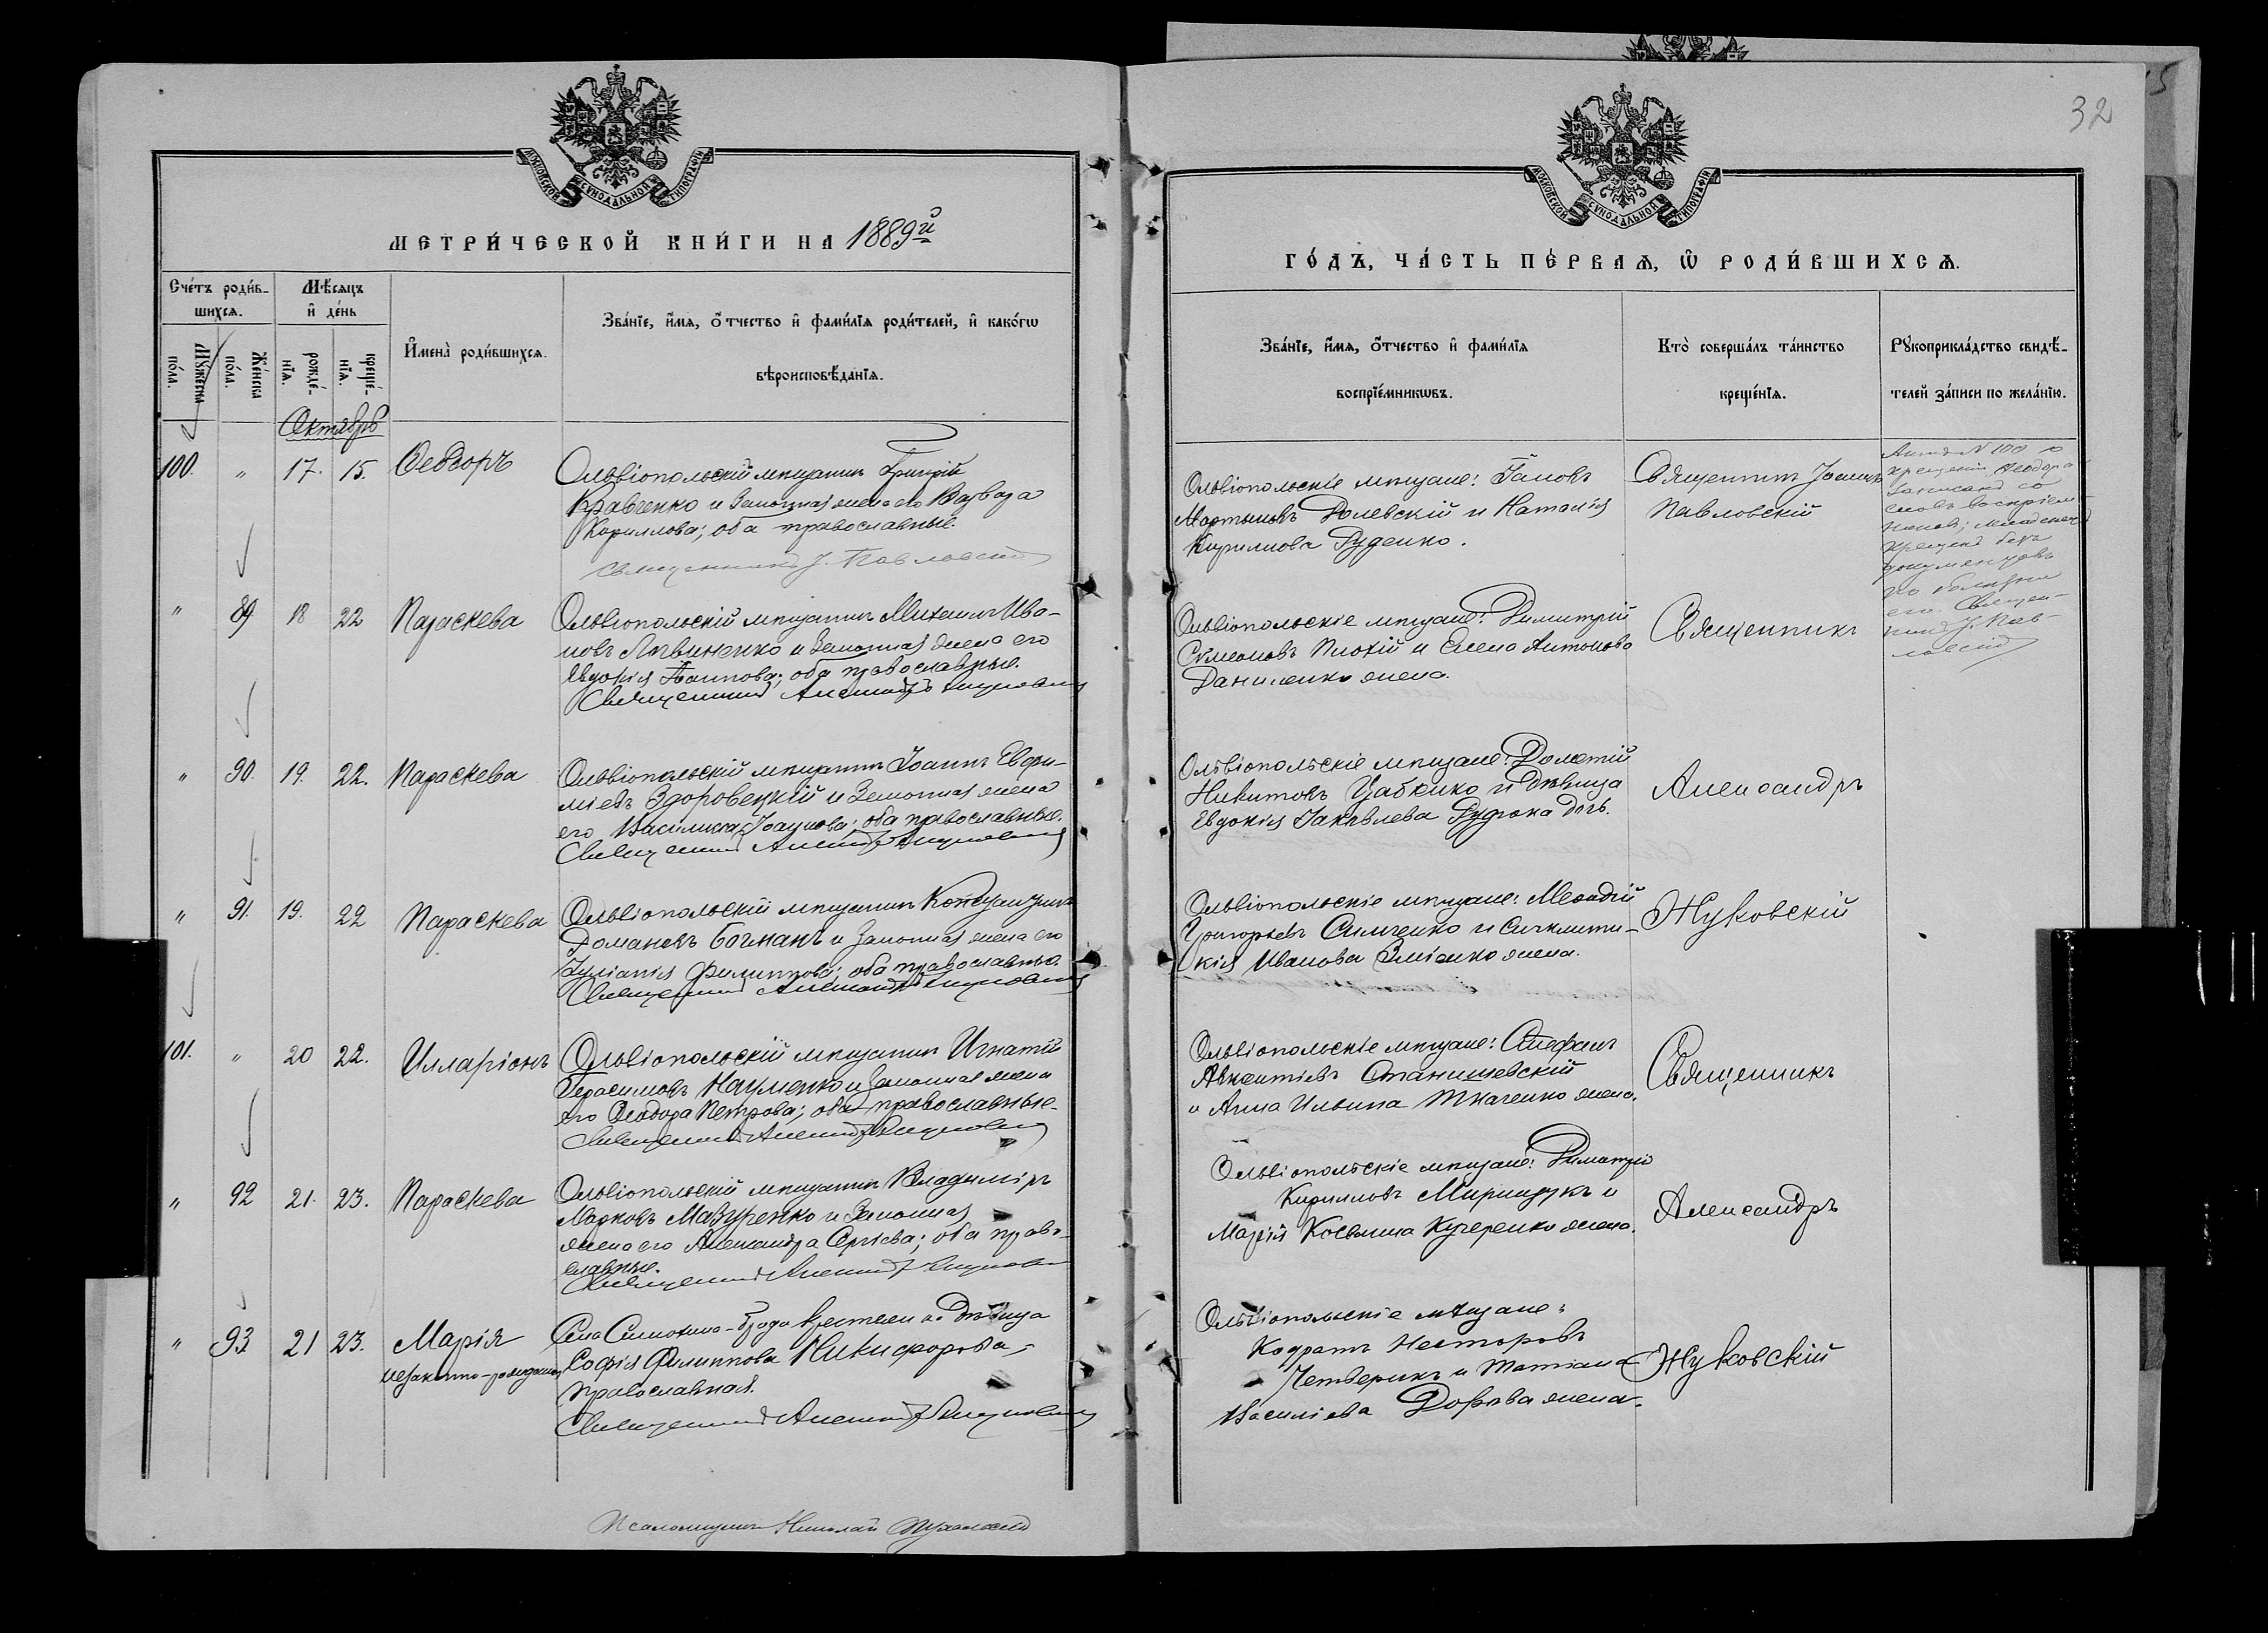 32
МОСКОВСКОЙ СѴНОДАЛЬНОЙ ТИПОГРАФІИ
МЕТРИ́ЧЕСКОЙ КНИ́ГИ НА 1889й
Сче́тъ роди́в-
шихся.
Мѣ́сяцъ
и҆ де́нь
Мꙋ́жеска
по́ла.
Же́нска
по́ла.
рожде́-
нїѧ.
креще́-
нїѧ.
И҆мена̀ роди́вшихсѧ.
Зва́нїе, и҆́мѧ, ѻ҆́тчество и҆ фами́лїѧ роди́телей, и҆ како́гѡ
вѣроисповѣ́данїѧ.
Октябрь
100. " 17. 15. Ѳеодоръ
Ольвіопольскій мѣщанинъ Григорій
Кравченко и законная жена его Варвара
Кириллова; оба православные.
Священникъ І. Павловскій
" 89 18 22 Параскева
Ольвіопольскій мѣщанинъ Михаилъ Ива-
новъ Литвиненко и законная жена его
Евдокія; оба православные.
Священникъ Александръ Жуковскій
" 90. 19. 22. Параскева
Ольвіопольскій мѣщанинъ Іоаннъ Евфи-
міевъ Здоровецкій и законная жена
его Василиса Іоаннова; оба православные.
Священникъ Александръ Жуковскій
" 91. 19. 22 Параскева
Ольвіопольскій мѣщанинъ
Домановъ Бочманъ и законная жена его
Іуліанія Филиппова; оба православные.
Священникъ Александръ Жуковскій
101. " 20 22. Илларіонъ
Ольвіопольскій мѣщанинъ Игнатій
Герасимовъ Науменко и законная жена
его Ѳеодора Петрова; оба православные.
Священникъ Александръ Жуковскій
" 92 21. 23. Параскева
Ольвіопольскій мѣщанинъ Владиміръ
Марковъ Мазуренко и законная
жена его Александра Сергѣева; оба право-
славные.
Священникъ Александръ Жуковскій
" 93 21 23. Марія
незаконно-рожденная
Села Синюхина-Брода крестьянка дѣвица
Софія Филиппова Никифорова,
православная.
Священникъ Александръ Жуковскій
Псаломщикъ Николай
МОСКОВСКОЙ СѴНОДАЛЬНОЙ ТИПОГРАФІИ
ГО́ДЪ, ЧА́СТЬ ПЕ́РВАѦ, Ѡ҆ РОДИ́ВШИХСѦ.
Зва́нїе, и҆́мѧ, ѻ҆́тчество и҆ фами́лїѧ
воспрїе́мникѡвъ.
Кто̀ соверша́лъ та́инство
креще́нїѧ.
Рꙋкоприкла́дство свидѣ́-
телей за́писи по жела́нїю.
Ольвіопольскіе мѣщане: Іаковъ
Мартыновъ Долевскій и Наталія
Кириллова Руденко.
Священникъ Іоаннъ
Павловскій
Актъ № 100 о
крещеніи Ѳеодора
записанъ со
словъ воспріем-
никовъ; младенецъ
крещенъ безъ
документовъ
по болѣзни
его. Священ-
никъ І. Пав-
ловскій
Ольвіопольскіе мѣщане: Димитрій
Сѵмеоновъ Плохій и Елена Антонова
Даниленко жена.
Священникъ
Ольвіопольскіе мѣщане: Дометій
Никитовъ Цабенко и дѣвица
Евдокія Іаковлева дочь.
Александръ
Ольвіопольскіе мѣщане: Меѳодій
Григорьевъ Симченко и Синклити-
кія Иванова Зміенко жена.
Жуковскій
Ольвіопольскіе мѣщане: Стефанъ
Авксентіевъ Станишевскій
и Анна Ильина Ткаченко жена.
Священникъ
Ольвіопольскіе мѣщане: Димитрій
Кирилловъ Мирищукъ и
Марія Косьмина Кучеренко жена.
Александръ
Ольвіопольскіе мѣщане:
Кодратъ Несторовъ
Четверикъ и Татіана
Василіева жена.
Жуковскій